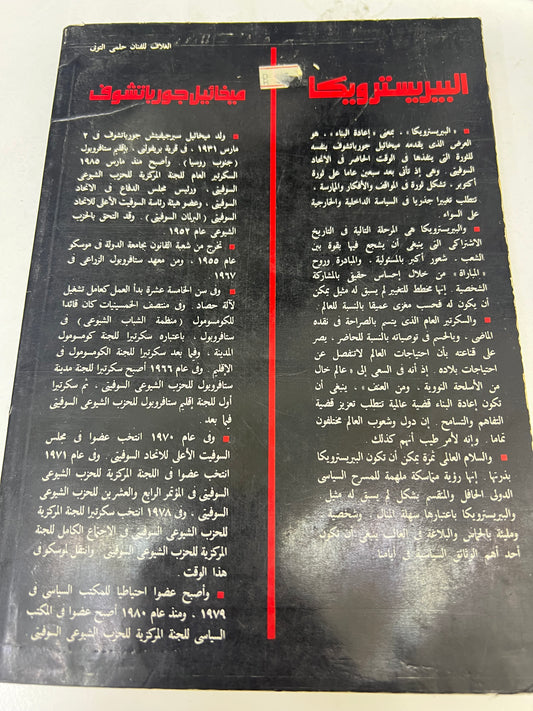 الغلاف للفنان حلمى التونى
البيريسترويكا
■ « البيريسترويكا » ، بمعنى « إعادة البناء » . هو
العرض الذى يقدمه ميخائيل جورباتشوف بنفسه
للثورة التى ينفذها فى الوقت الحاضر فى الاتحاد
السوفيتى . وهى إذ تأتى بعد سبعين عاما على ثورة
أكتوبر ، تشكل ثورة فى المواقف والأفكار والممارسة .
تتطلب تغييرا جذريا فى السياسة الداخلية والخارجية
على السواء .
■ والبيريسترويكا هى المرحلة التالية فى التاريخ
الاشتراكى التى ينبغى أن يشجع فيها بقوة بين
الشعب . شعور أكبر بالمسئولية . والمبادرة وروح
« المباراة » من خلال إحساس حقيقى بالمشاركة
الشخصية . إنها مخطط للتغيير لم يسبق له مثيل يمكن
أن يكون له فحسب مغزى عميقا بالنسبة للعالم .
■ والسكرتير العام الذى يتسم بالصراحة فى نقده
الماضى . وبالحسم فى توصياته بالنسبة للحاضر . يصر
على قناعته بأن احتياجات العالم لاتنفصل عن
احتياجات بلاده . إذ أنه فى السعى إلى « عالم خال
من الأسلحة النووية . ومن العنف » . ينبغى أن
تكون إعادة البناء قضية عالمية تتطلب تعزيز قضية
التفاهم والتسامح . إن دول وشعوب العالم مختلفون
تماما . وإنه لأمر طيب أنهم كذلك .
■ والسلام العالمى ثمرة يمكن أن تكون البيريسترويكا
بذرتها . إنها رؤية متماسكة ملهمة للمسرح السياسى
الدولى الحافل والمنقسم بشكل لم يسبق له مثيل .
والبيريسترويكا باعتبارها سهلة المنال . وشخصية
ومليئة بالحماس والبلاغة فى الغالب ينبغى أن تكون
أحد أهم الوثائق السياسية فى أيامنا .
ميخائيل جورباتشوف
■ ولد ميخائيل سيرجيفيتش جورباتشوف فى ٢
مارس ١٩٣١ . فى قرية بريفولنى ، بإقليم ستافروبول
( جنوب روسيا ) . وأصبح منذ مارس ١٩٨٥
السكرتير العام للجنة المركزية للحزب الشيوعى
السوفيتى . ورئيس مجلس الدفاع فى الاتحاد
السوفيتى . وعضو هيئة رئاسة السوفيت الأعلى للاتحاد
السوفيتى ( البرلمان السوفيتى ) . وقد التحق بالحزب
الشيوعى عام ١٩٥٢
■ تخرج من شعبة القانون بجامعة الدولة فى موسكو
عام ١٩٥٥ . ومن معهد ستافروبول الزراعى فى
١٩٦٧
■ وفى سن الخامسة عشرة بدأ العمل كعامل تشغيل
لآلة حصاد . وفى منتصف الخمسينيات كان قائدا
للكومسومول ( منظمة الشباب الشيوعى ) فى
ستافروبول ، باعتباره سكرتيرا للجنة كومسومول
المدينة ، وفيما بعد سكرتيرا للجنة الكومسومول فى
الإقليم . وفى عام ١٩٦٦ أصبح سكرتيرا للجنة مدينة
ستافروبول للحزب الشيوعى السوفيتى . ثم سكرتيرا
أول للجنة إقليم ستافروبول للحزب الشيوعى السوفيتى
فيما بعد .
■ وفى عام ١٩٧٠ انتخب عضوا فى مجلس
السوفيت الأعلى للاتحاد السوفيتى . وفى عام ١٩٧١
انتخب عضوا فى اللجنة المركزية للحزب الشيوعى
السوفيتى فى المؤتمر الرابع والعشرين للحزب الشيوعى
السوفيتى . وفى ١٩٧٨ انتخب سكرتيرا للجنة المركزية
للحزب الشيوعى السوفيتى فى الاجتماع الكامل للجنة
المركزية للحزب الشيوعى السوفيتى . وانتقل لموسكو فى
هذا الوقت .
■ وأصبح عضوا احتياطيا للمكتب السياسى فى
١٩٧٩ ، ومنذ عام ١٩٨٠ أصبح عضوا فى المكتب
السياسى للجنة المركزية للحزب الشيوعى السوفيتى .